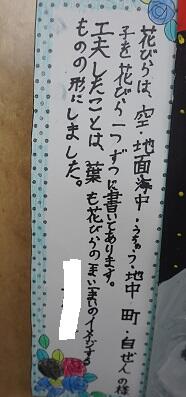 花びらは、空・地面海中・うちゅう・地中 町・自ぜんの様
子を花びら一つずつに書いてあります。
工夫したことは、葉も花びらのまい
ものの形にしました。